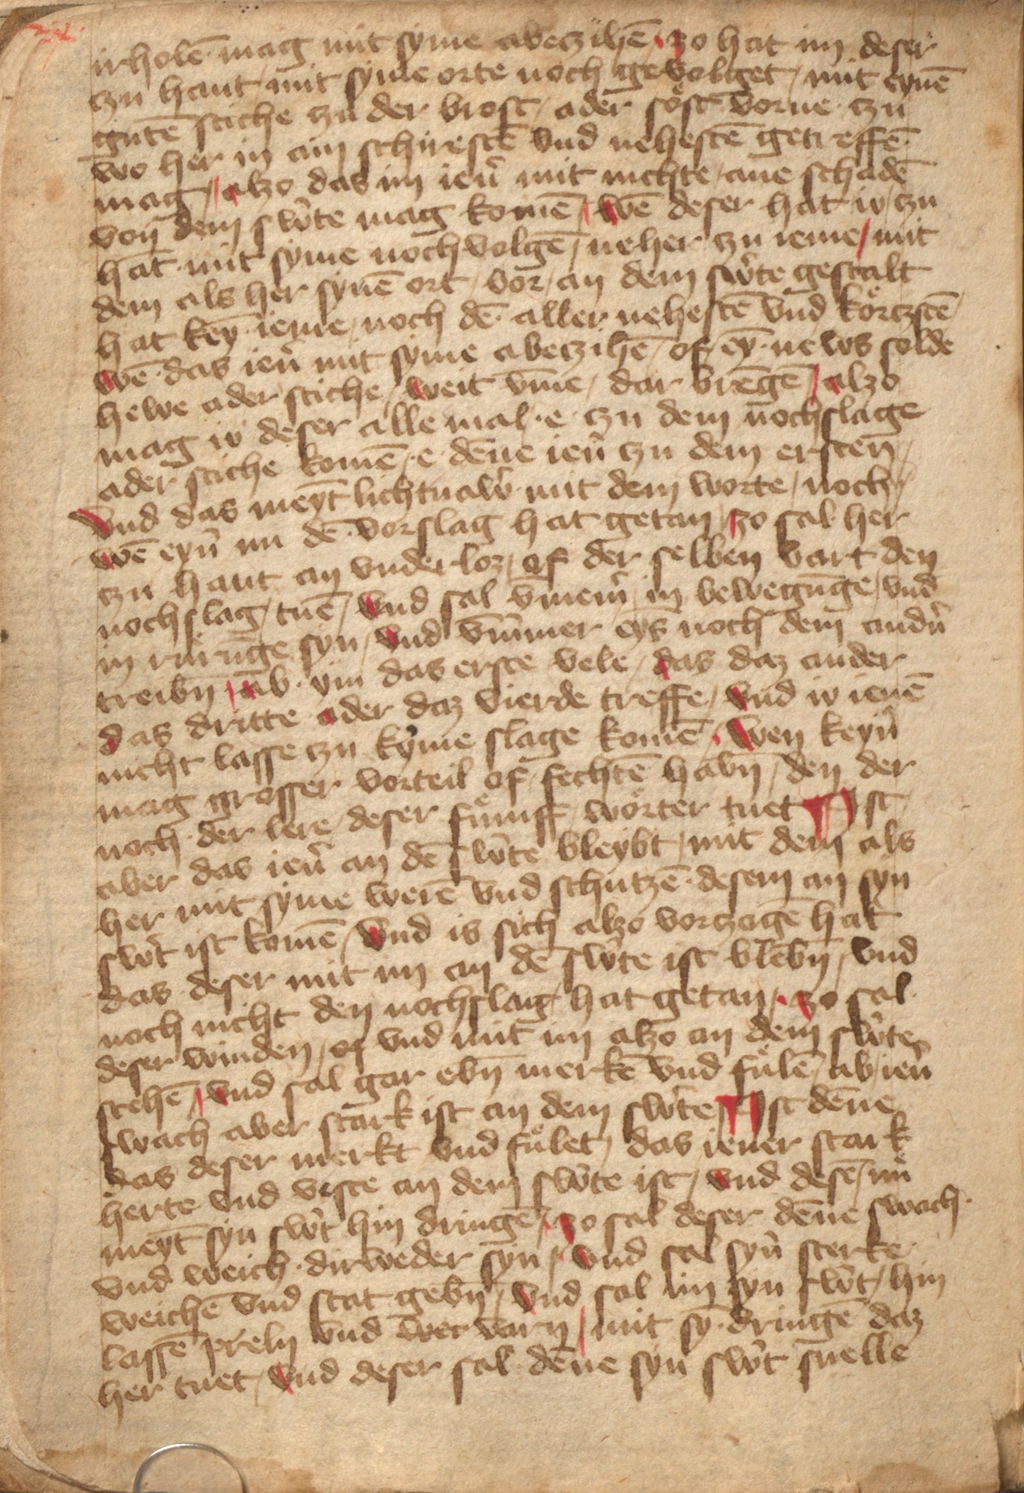 irholen mag mit syme abeczihē / zo hat im deser
czu hant mit syme orte noch gevolget / mit eynē
gutē stiche zu der brost / ader söst vorne czu
wo her in am schirestē vnd nehestē getreffē
mag / alzo das im ieň mit nichte / ane schadē
von dem sw̉te mag komē / wē deser hat io / zu
hāt mit syme nochvolgē / neher zu ieme / mit
dem als her synē ort / vor / an dem sw̉te gestalt
hat keȳ ieme / noch dē aller nehestē vnd körczstē
wē das ieň mit syme abeczihē / of eȳ news solde
hewe ader stiche / weit v̄me / dar brēgē / alzo
mag io deser allemal e czu dem nochslage
ader stiche komē / e dēne ieň zu dem ersten /
Vnd das meyt lichtnaw̉ mit dem worte / noch /
wē eyň nu dē vorslag hat getan / zo sal her
zu hant an vnderloz / of der selben vart den
nochslag / tuē / vnd sal v̄mem̉ in bewegūge / vnd
in rürūge syn / vnd v̄mmer eys noch dem andň
treibn̄ / ab ym das erste vele / das daz ander
das dritte ader daz vierde treffe / vnd io ienē
nicht lasse czu kyme slage komē / Wen keyň
mag grosser vorteil of fechtē habn̄ / den der
noch der lere deser fümff wörter tuet Ist
aber das ieň an dē sw̉te bleybt / mit dem als
her mit syme werē vnd schutzē desem an syn
sw̉t ist komē / vnd is sich alzo vorczogē hat
das deser mit im an dē sw̉te ist blebn̄ / vnd
noch nicht den nochslag hat getan / zo sal
deser winden / of vnd mit im alzo an dem sw̉te
stehē / vnd sal gar ebn̄ merkē vnd fülē / ab ieň
swach aber stark ist an dem sw̉te Ist dēne
das deser merkt vnd fület / das iener stark
herte vnd veste an dem sw̉te ist / vnd desē / nü
meyt syn sw̉t hin dringē / zo sal deser dēne swach
vnd weich dirweder syn / vnd sal syň sterke
weichē vnd stat gebn̄ / vnd sal im syn sw̉t / hin
lassē preln vnd wec varn / mit sȳ dringē daz
her tuet / vnd deser sal dēne syn sw̉t snelle